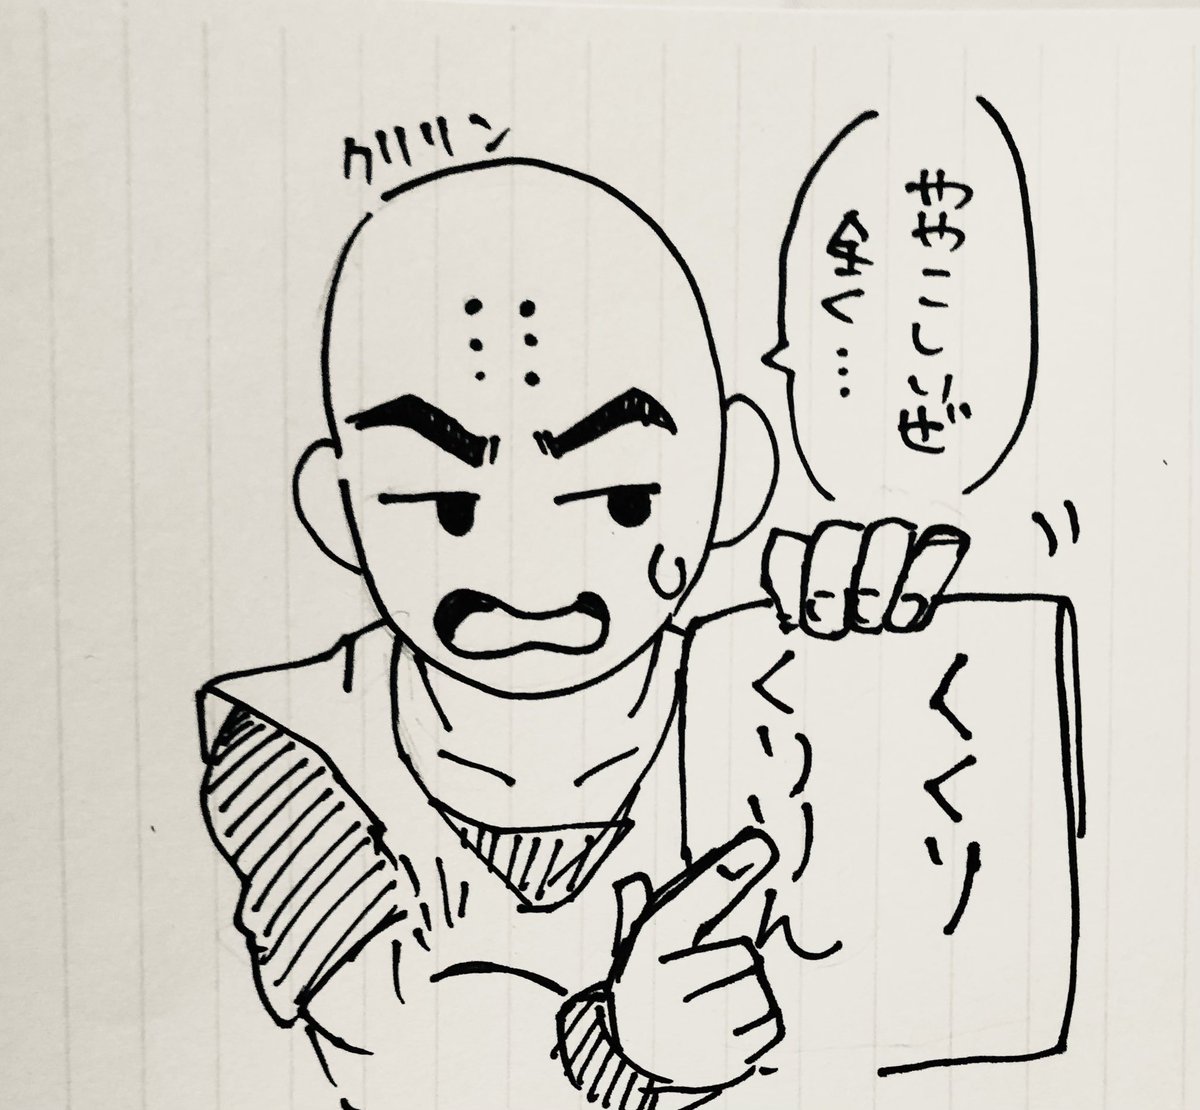 クリリン
ややこしいぜ
全く…
くくり
くりりん